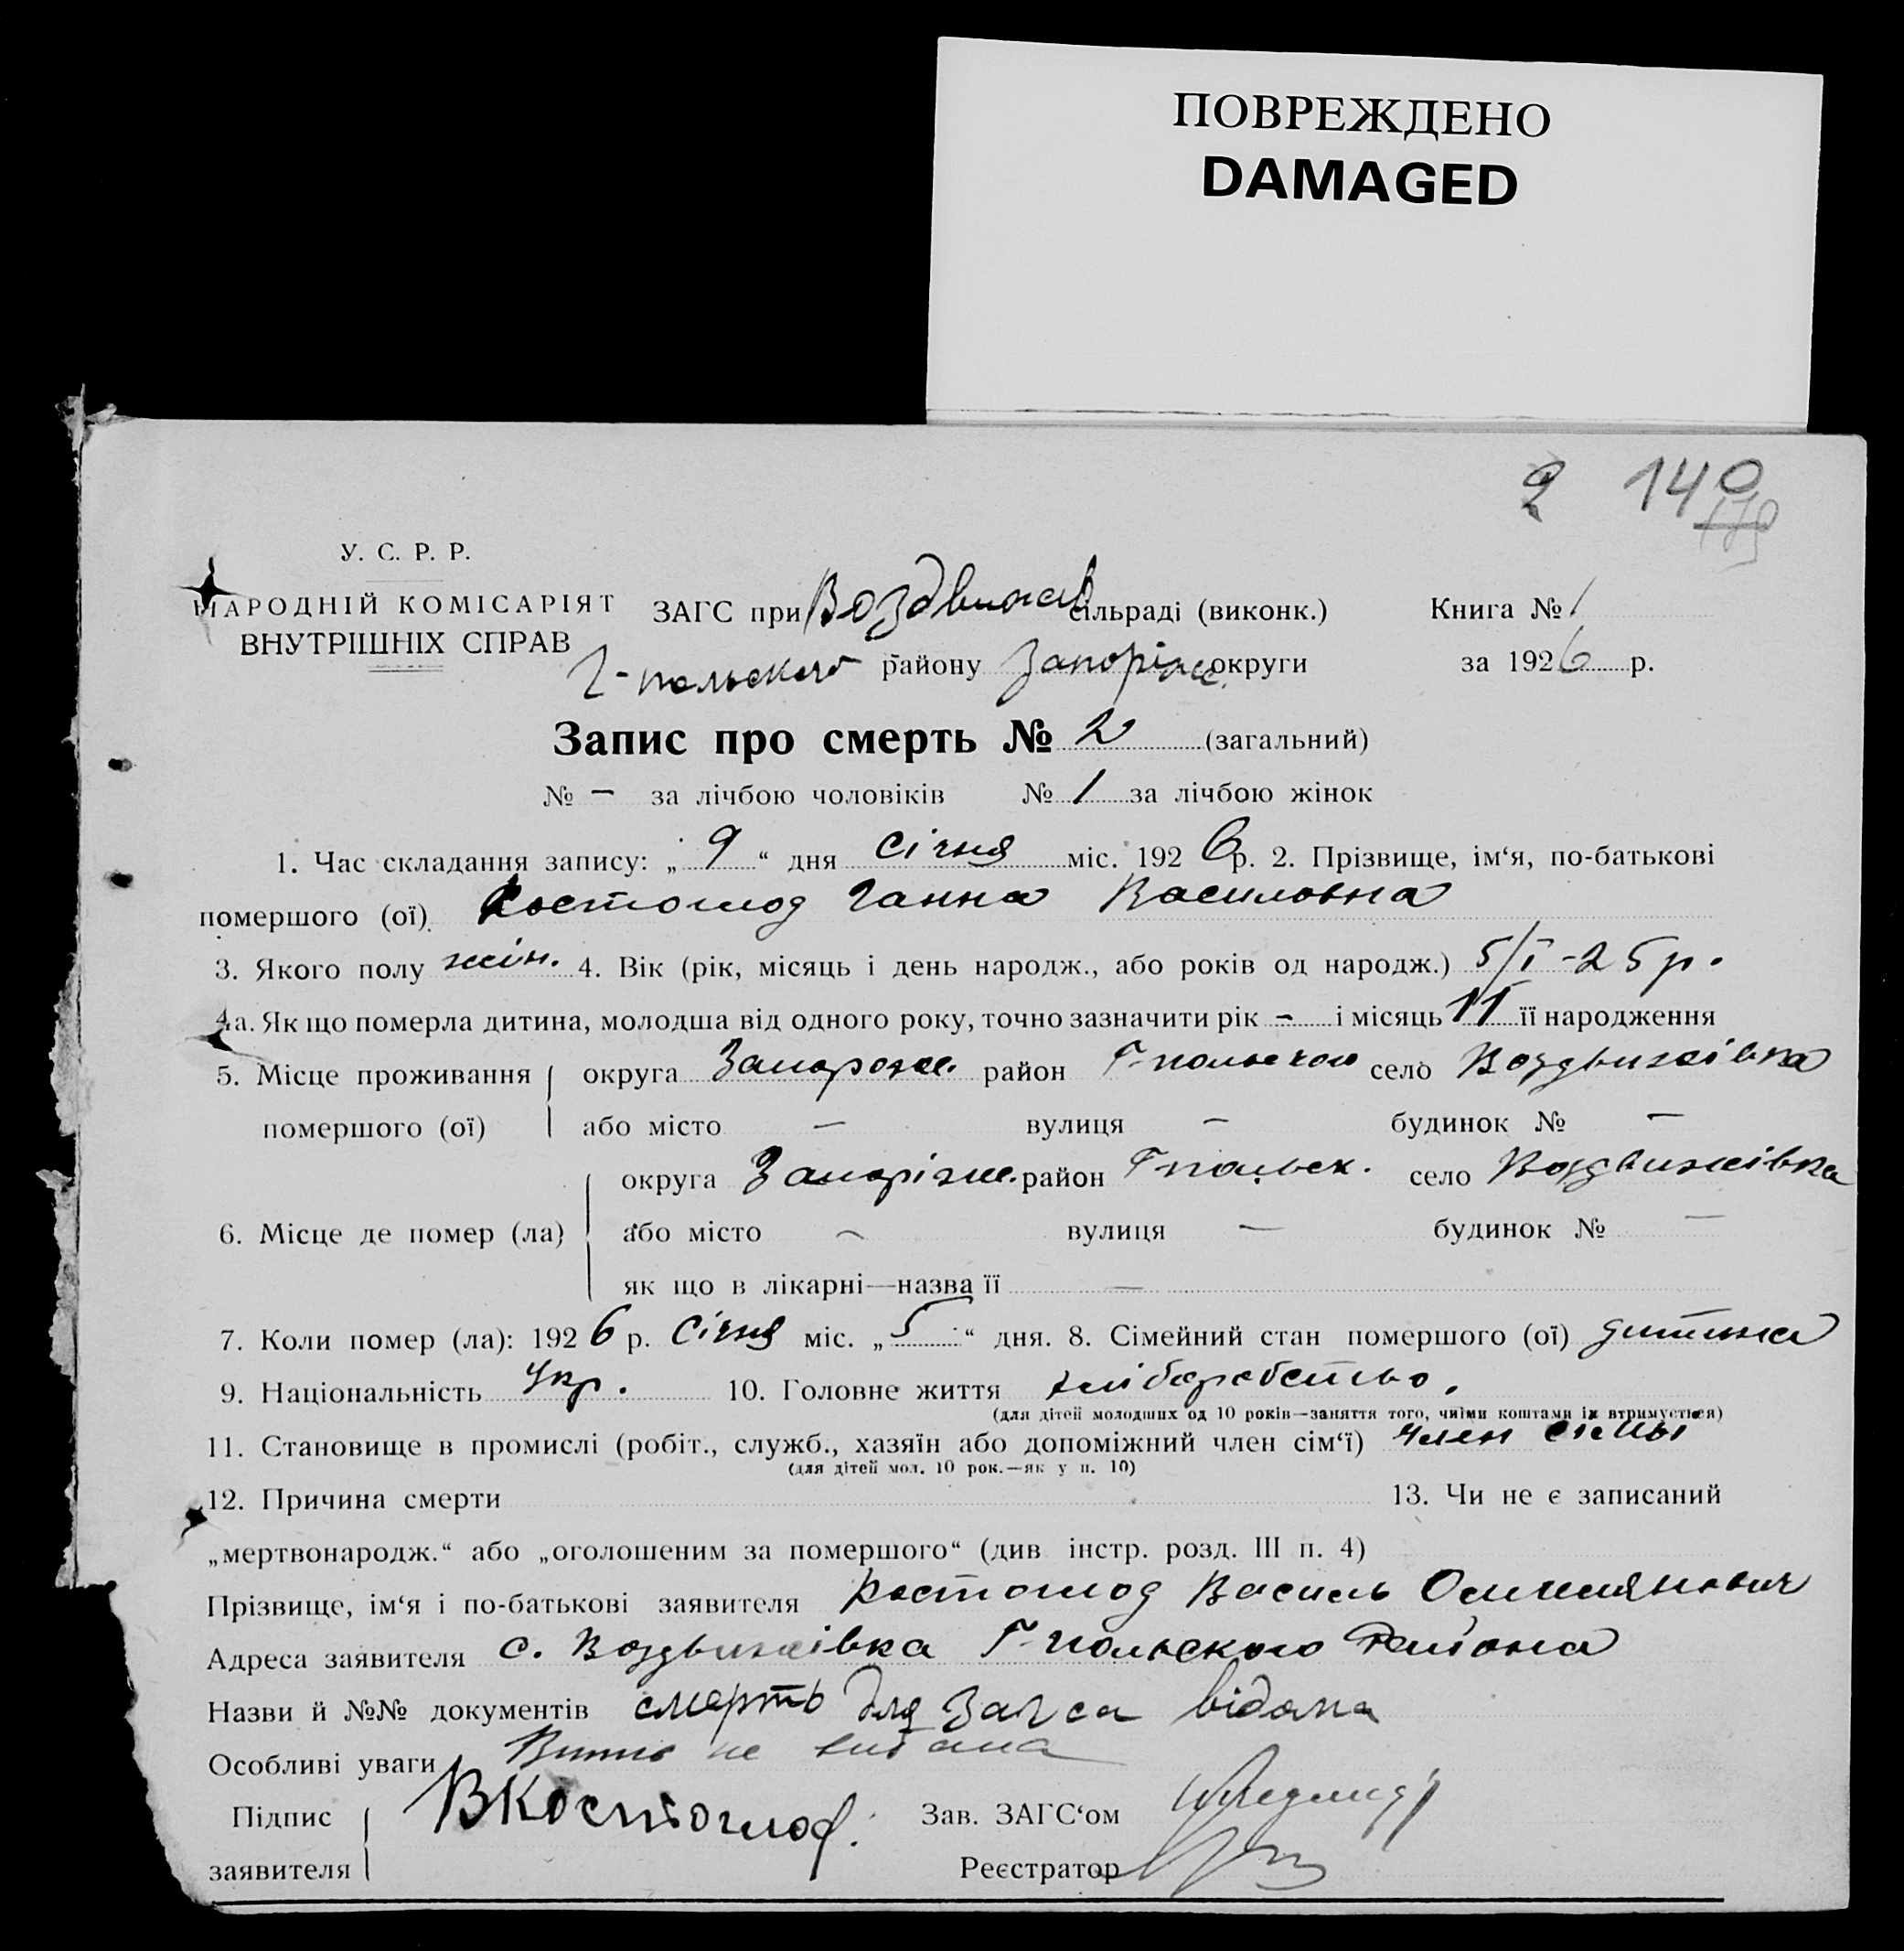 ПОВРЕЖДЕНО
DAMAGED
2 140
У. С. Р. Р.
НАРОДНІЙ КОМІСАРІЯТ
ВНУТРІШНІХ СПРАВ
ЗАГС при Воздвижків сільраді (виконк.) Книга № 1
Г-польского району Запоріж. округи за 1926 р.
Запис про смерть № 2 (загальний)
№ – за лічбою чоловіків № 1 за лічбою жінок
1. Час складання запису: „ 9 “ дня січня міс. 1926 р. 2. Прізвище, ім‘я, по-батькові
помершого (ої) Костоглод Ганна Василовна
3. Якого полу жін. 4. Вік (рік, місяць і день народж., або років од народж.) 5/I -25 р.
4а. Як що померла дитина, молодша від одного року, точно зазначити рік – і місяць 11 її народження
5. Місце проживання округа Запорож. район Г-польского село Воздвижівка
помершого (ої) або місто – вулиця – будинок № –
округа Запоріж. район Г польск. село Воздвижівка
6. Місце де помер (ла) або місто – вулиця – будинок № –
як що в лікарні—назва її –
7. Коли помер (ла): 1926 р. Січня міс. „ 5 “ дня. 8. Сімейний стан помершого (ої) дитина
9. Національність Укр. 10. Головне життя хліборобство.
(для дітей молодших од 10 років—заняття того, чиїми коштами їх втримується)
11. Становище в промислі (робіт., служб., хазяїн або допоміжний член сім‘ї) член сімьі
(для дітей мол. 10 рок.—як у п. 10)
12. Причина смерти 13. Чи не є записаний
„мертвонародж.“ або „оголошеним за помершого“ (див інстр. розд. III п. 4)
Прізвище, ім‘я і по-батькові заявителя Костоглод Василь
Адреса заявителя с. Воздвижівка Г-польского Района
Назви й №№ документів смерть для Загса відома
Особливі уваги не видана
Підпис ВКостоглод. Зав. ЗАГС‘ом
заявителя Реєстратор